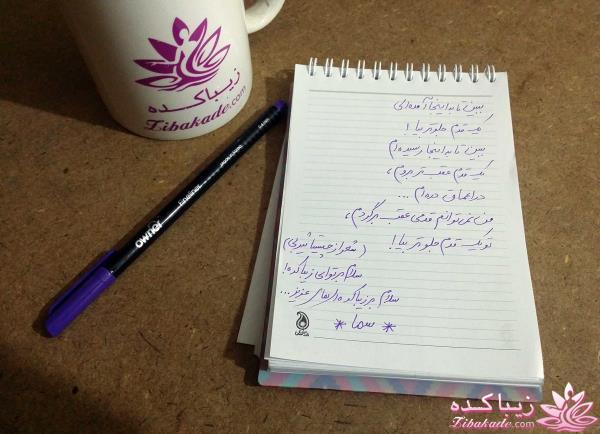 زیباکده
Zibakade.com
owner
Fineliner
ببین تا به اینجا آمده‌ای
یک قدم جلوتر بیا!
ببین تا به اینجا رسیده‌ام
یک قدم عقب‌تر بروم،
ته دره‌ام ...
من نمی‌توانم قدمی عقب برگردم،
تو یک قدم جلوتر بیا!
سلام بر توای زیباکده!
سلام بر زیباکده‌ای‌های عزیز...
* سما *
زیباکده
Zibakade.com